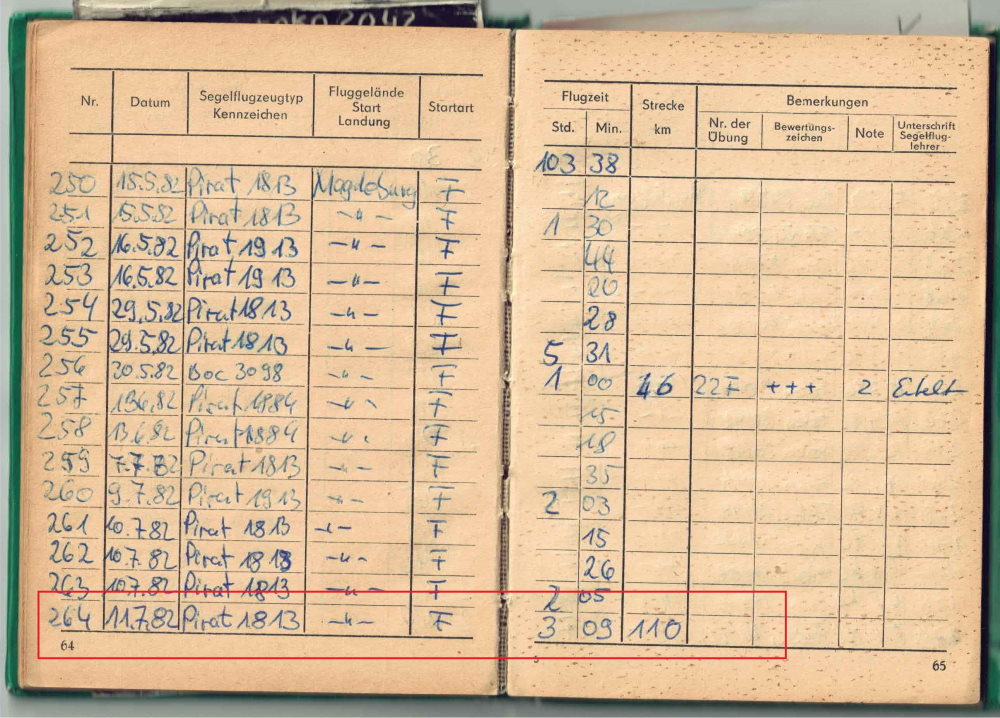 Nr.
Datum
Segelflugzeugtyp
Kennzeichen
Fluggelände
Start
Landung
Startart
250 15.5.82 Pirat 1813 Magdeburg F
251 15.5.82 Pirat 1813 -"- F
252 16.5.82 Pirat 1913 -"- F
253 16.5.82 Pirat 1913 -"- F
254 29.5.82 Pirat 1813 -"- F
255 29.5.82 Pirat 1813 -"- F
256 30.5.82 Boc 3098 -"- F
257 13.6.82 Pirat 1884 -"- F
258 13.6.82 Pirat 1884 -"- F
259 7.7.82 Pirat 1813 -"- F
260 9.7.82 Pirat 1913 -"- F
261 10.7.82 Pirat 1813 -"- F
262 10.7.82 Pirat 1818 -"- F
263 10.7.82 Pirat 1813 -"- F
264 11.7.82 Pirat 1813 -"- F
64
Flugzeit
Std. Min.
Strecke
km
Bemerkungen
Nr. der
Übung
Bewertungs-
zeichen
Note
Unterschrift
Segelflug-
lehrer
103 38
12
1 30
44
20
28
5 31
1 00 46 22F +++ 2
15
18
35
2 03
15
26
2 05
3 09 110
5
65